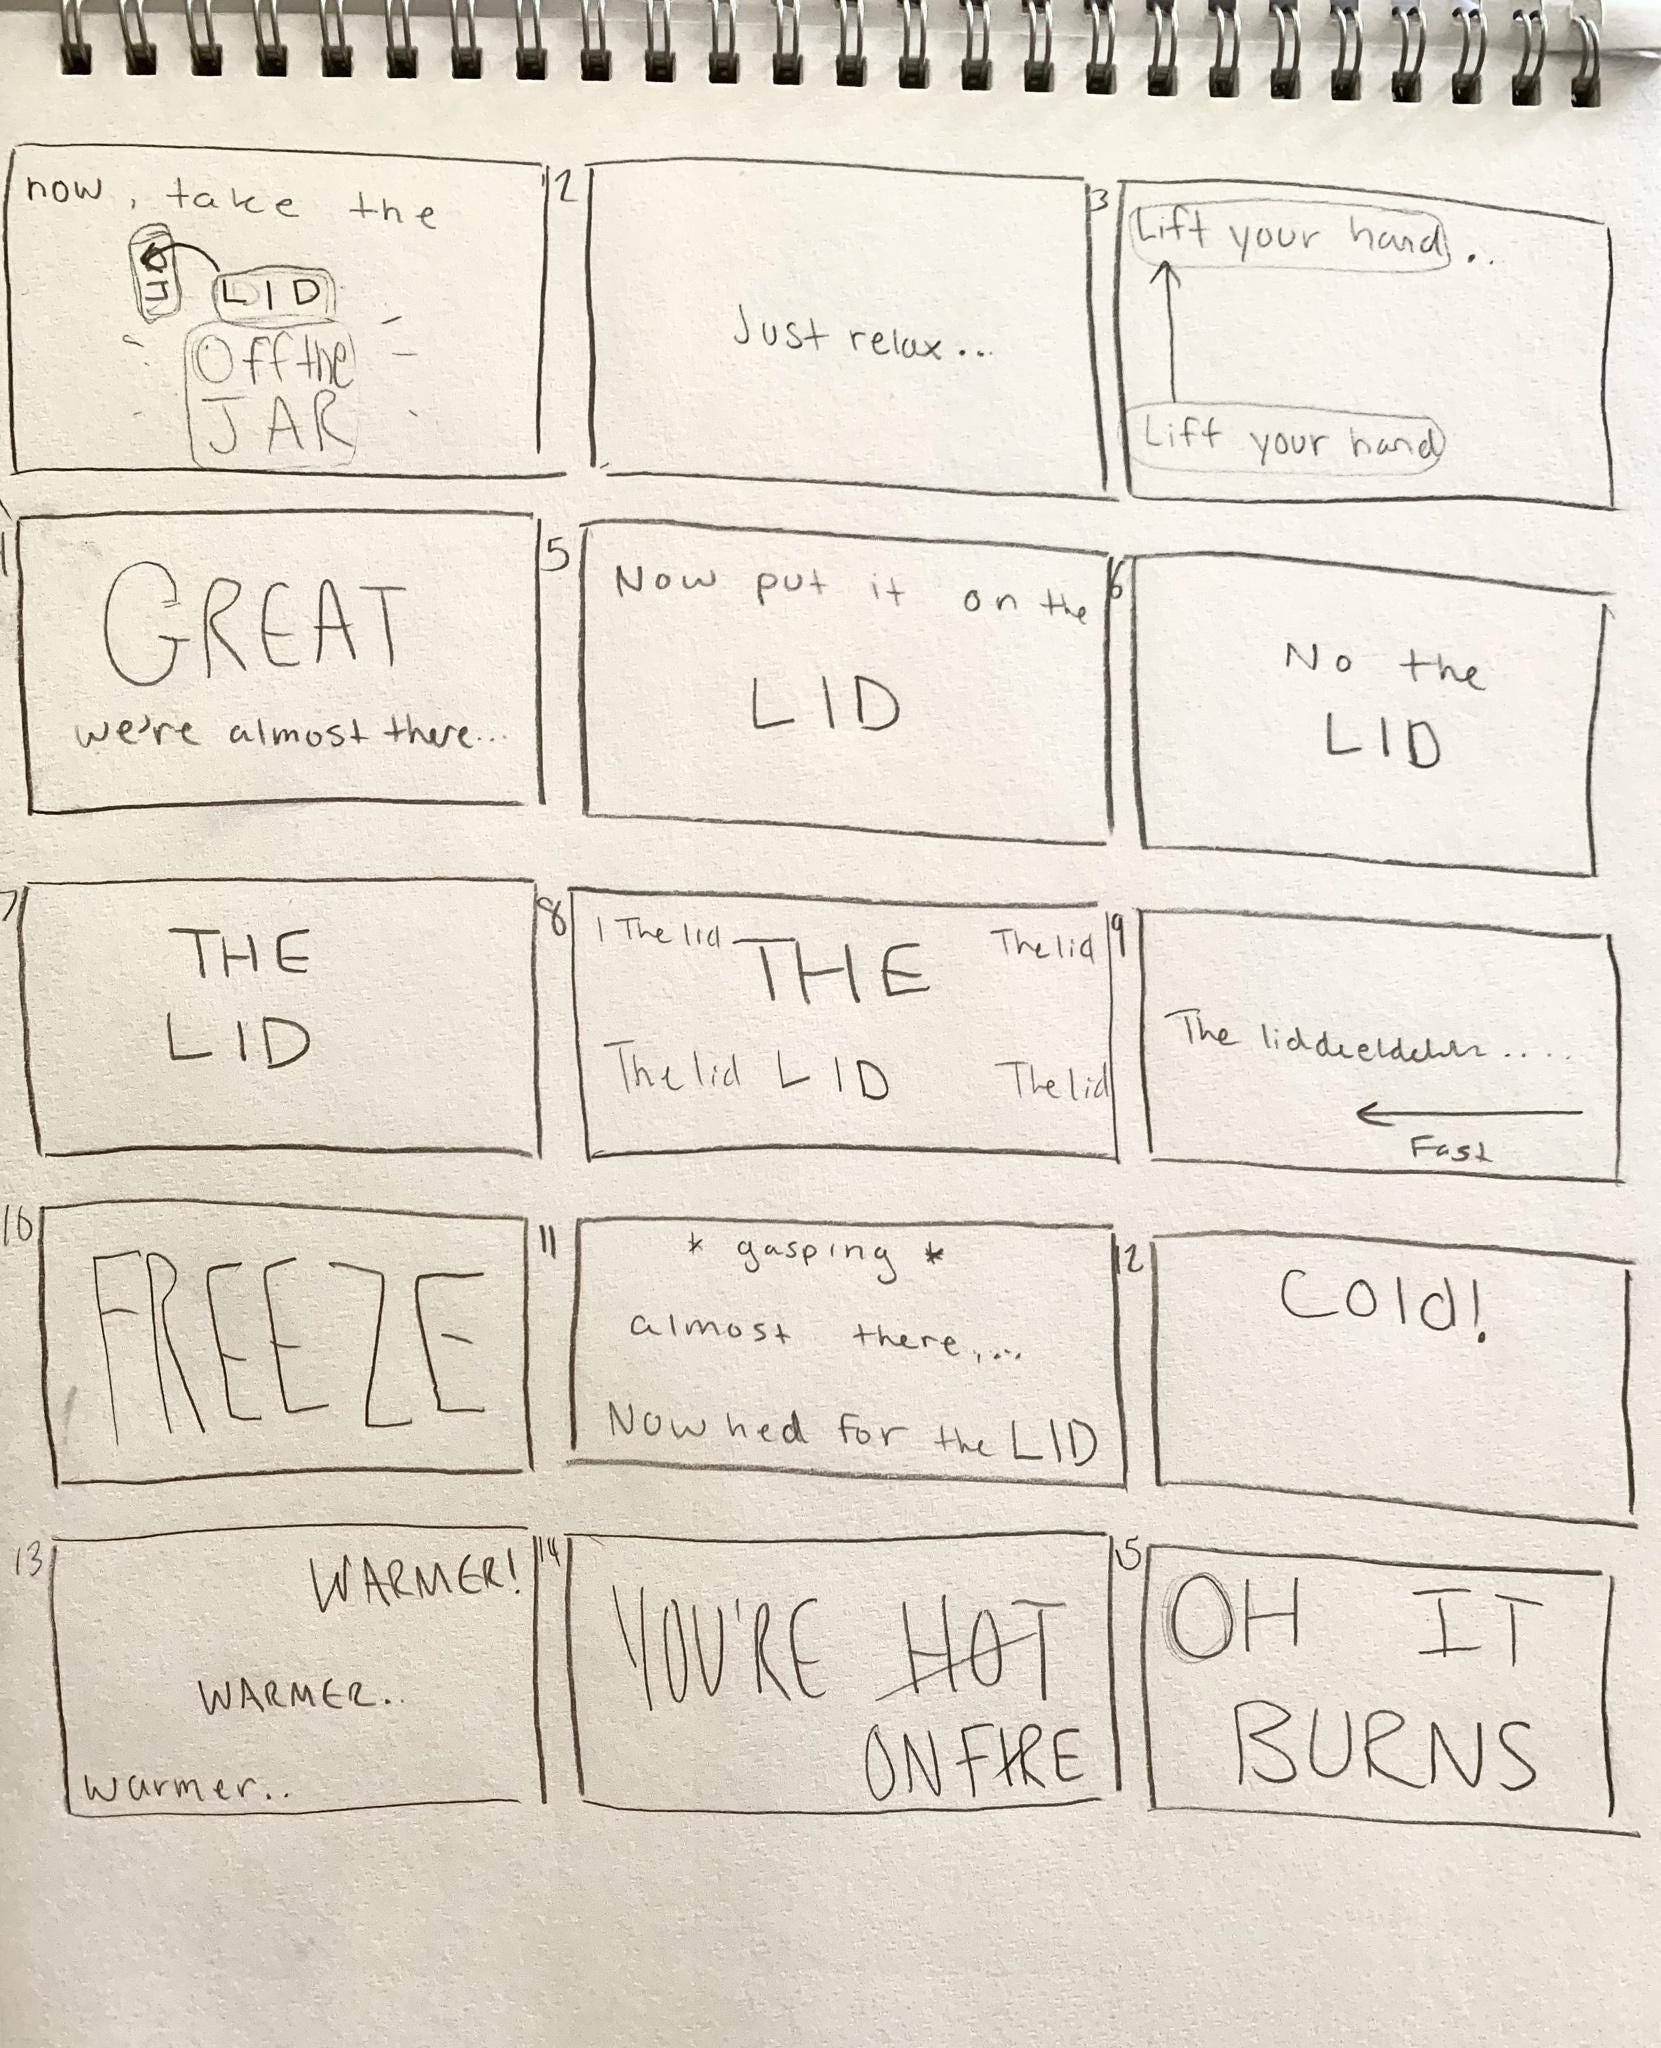 now, take the
LID
LID
Off the
JAR
2
Just relax...
3
Lift your hand..
Lift your hand
GREAT
we're almost there...
5
Now put it on the
LID
6
No the
LID
7
THE
LID
8
The lid
THE
The lid
The lid
LID
The lid
9
The
Fast
10
FREEZE
11
* gasping *
almost there....
Now hed for the LID
12
Cold!
13
WARMER!
WARMER..
warmer..
14
YOU'RE HOT
ON FIRE
15
OH IT
BURNS